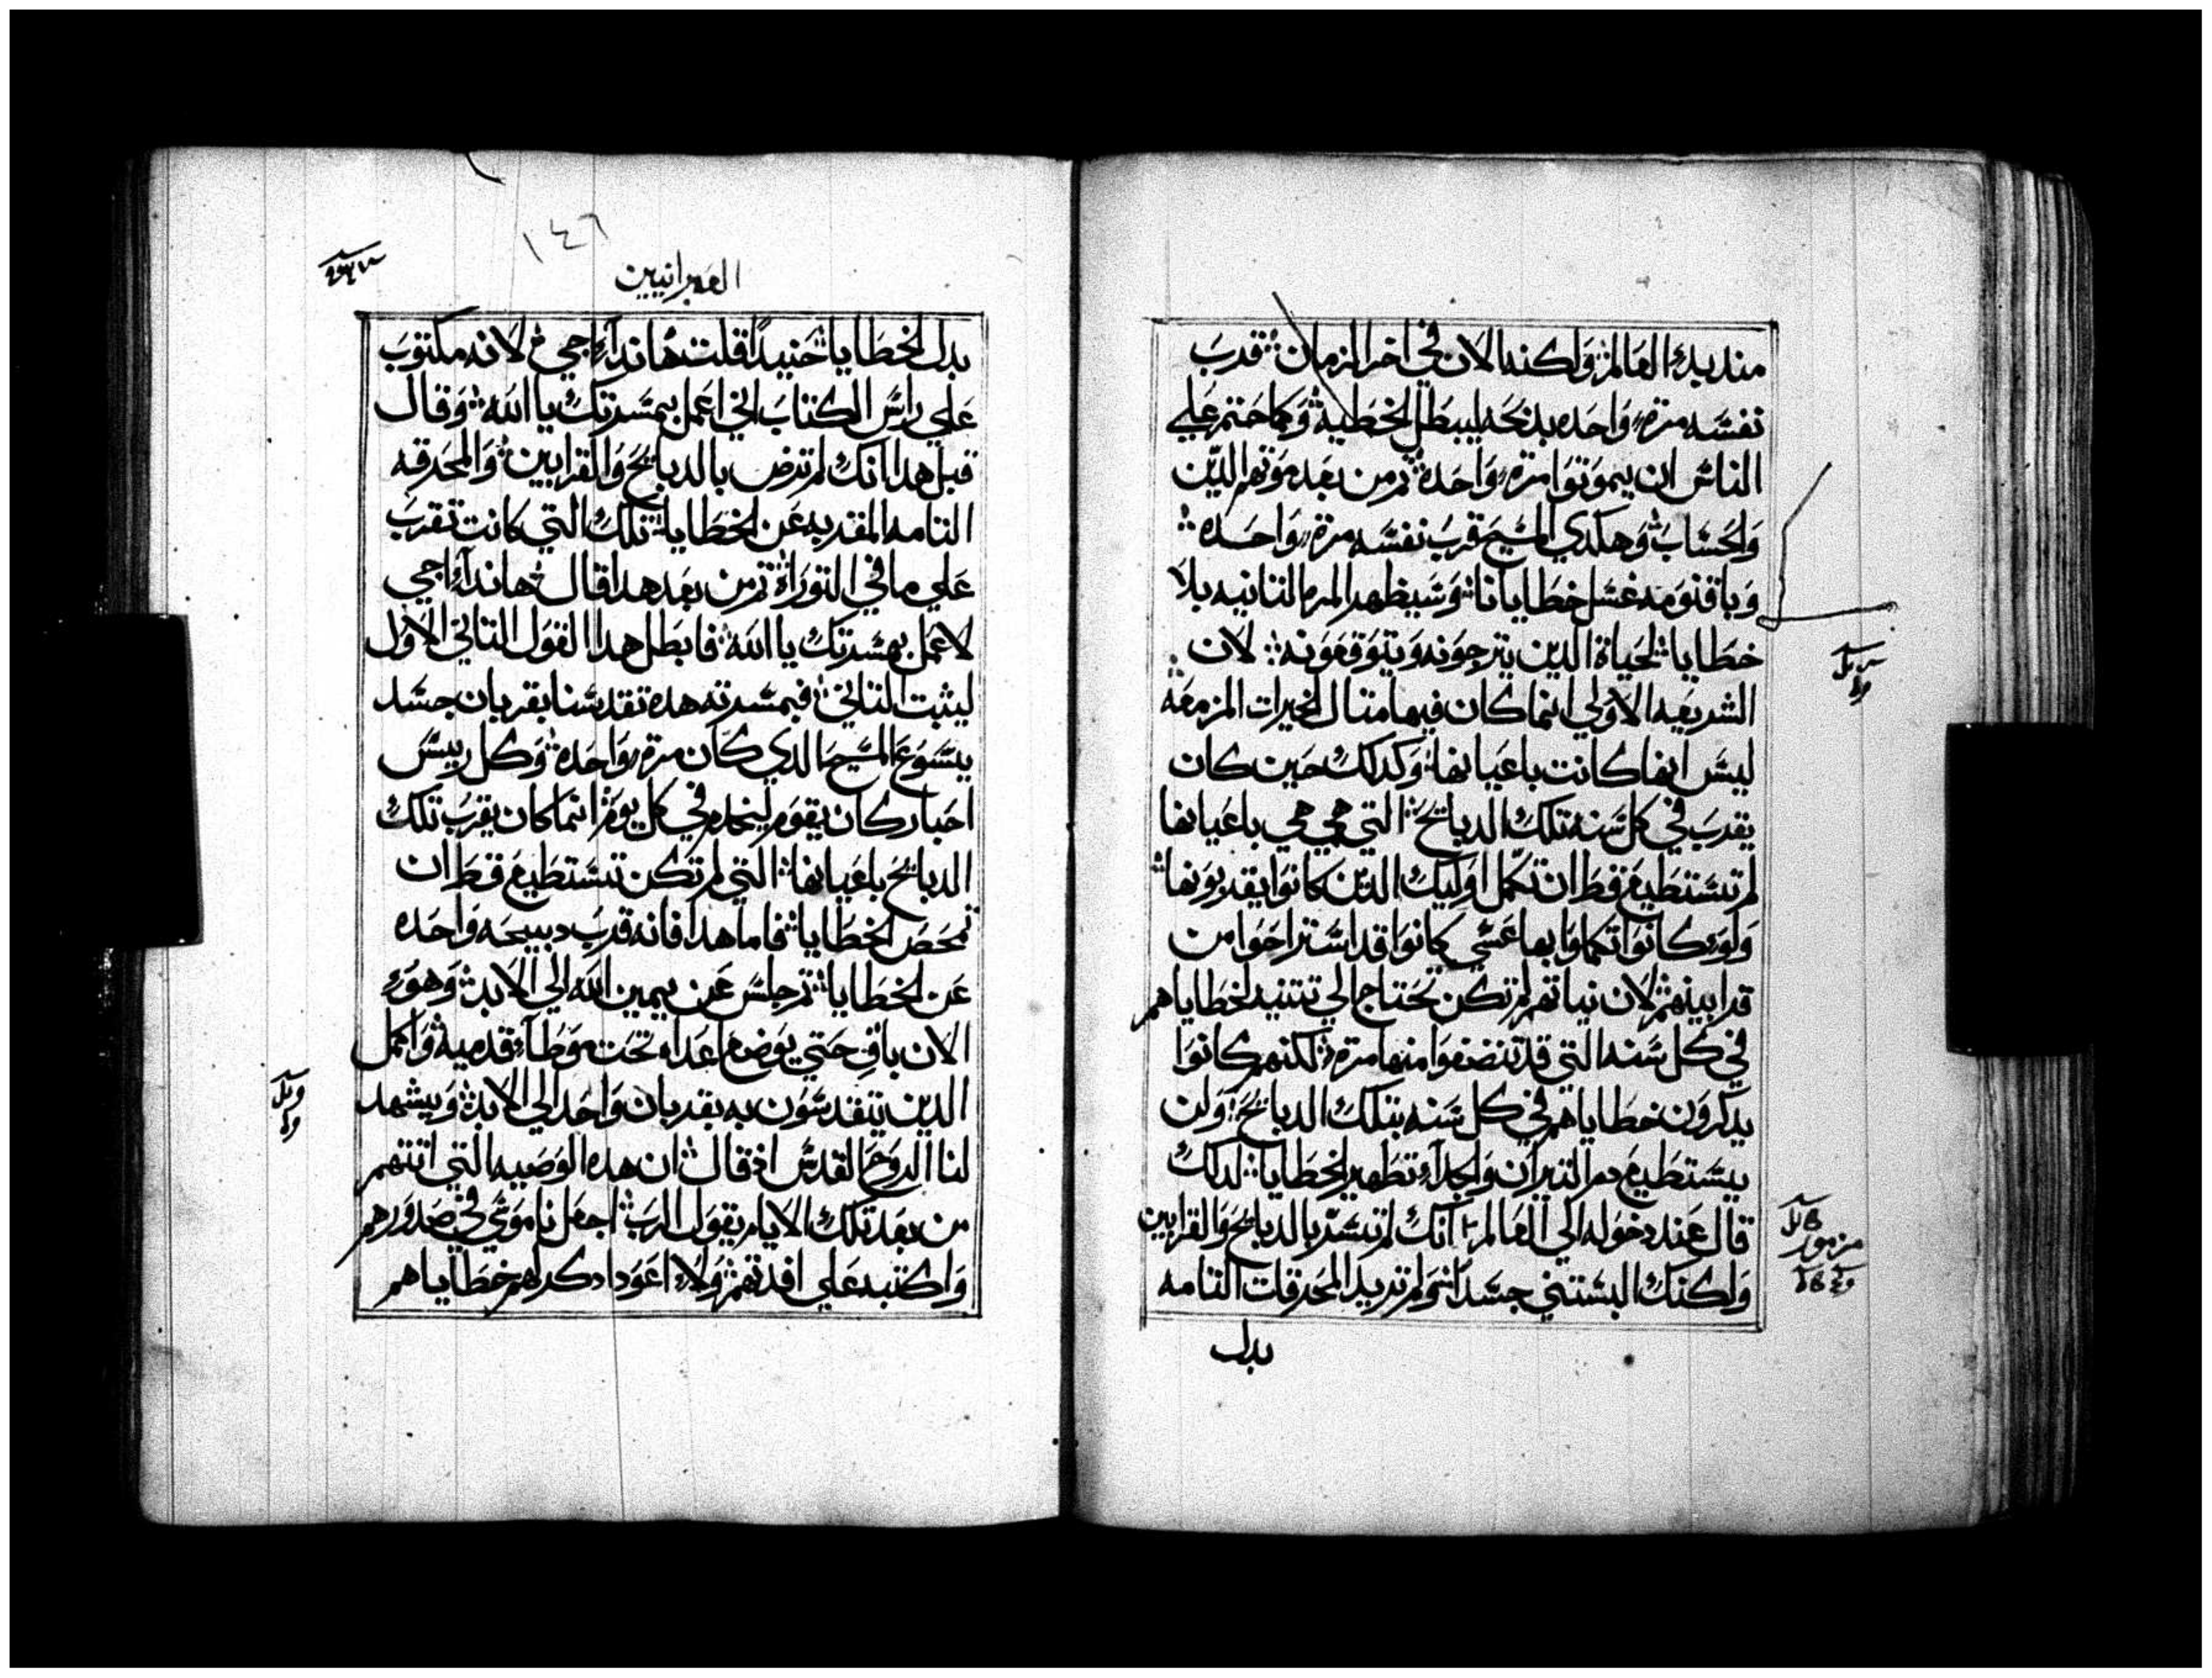 مند بدء العالم ولكنه الان في اخر الزمان قرب
نفسه مرة واحده بذبحه ليبطل الخطية وكما حتم علي
الناس ان يموتوا مرة واحدة ثم من بعد موتهم الدين
والحساب وهكدي المسيح قرب نفسه مرة واحده
وباقنومه غسل خطايانا وسيظهر المره التانيه بلا
خطايا لحياة الدين يترجونه ويتوقعونه لان
الشريعه الاولي انما كان فيها متال الخيرات المزمعه
ليس انها كانت باعيانها وكدلك حين كان
يقرب في كل سنه تلك الدبايح التي هي هي باعيانها
لم تستطيع قط ان تكمل اوليك الدين كانوا يقربونها
ولو كانوا تكملوا بها عسي كانوا قد استراحوا من
قرابينهم لان نياتهم لم تكن تحتاج الي تتنيه لخطاياهم
في كل سنه التي قد تنضفوا منها مرة لكنهم كانوا
يدكرون خطاياهم في كل سنه بتلك الدبايح ولن
يستطيع دم التيران والجدآء تطهير الخطايا لدلك
قال عند دخوله الي العالم انك لم تسر بالدبايح والقرابين
ولكنك البستني جسدا ولم تريد المحرقات التامه
بدل
مزمور
١٤٦
العبرانيين
بدل الخطايا حنيدا قلت هاندا اجي لانه مكتوب
علي راس الكتاب اني اعمل بمسرتك يا الله وقال
قبل هدا انك لم ترض بالدبايح والقرابين والمحرقه
التامه المقربه عن الخطايا تلك التي كانت تقرب
علي ما في التوراة تم من بعد هدا قال هاندا اجي
لاعمل بمسرتك يا الله فابطل هدا القول التاني الاول
ليثبت التاني فبمسرته هده تقدسنا بقربان جسد
يسوع المسيح الدي كان مرة واحده وكل رييس
احبار كان يقوم ليخدم في كل يوم انما كان يقرب تلك
الدبايح باعيانها التي لم تكن تستطيع قط ان
تمحص الخطايا فاما هدا فانه قرب دبيحه واحده
عن الخطايا تم جلس عن يمين الله الي الابد وهو
الان باق حتي يوضع اعداه تحت موطآء قدميه واكمل
الدين يتقدسون به بقربان واحد الي الابد ويشهد
لنا الروح القدس اذ قال ان هده الوصيه التي اتتهم
من بعد تلك الايام يقول الرب اجعل ناموسي في صدورهم
واكتبه علي افدتهم ولا اعود ادكر لهم خطاياهم